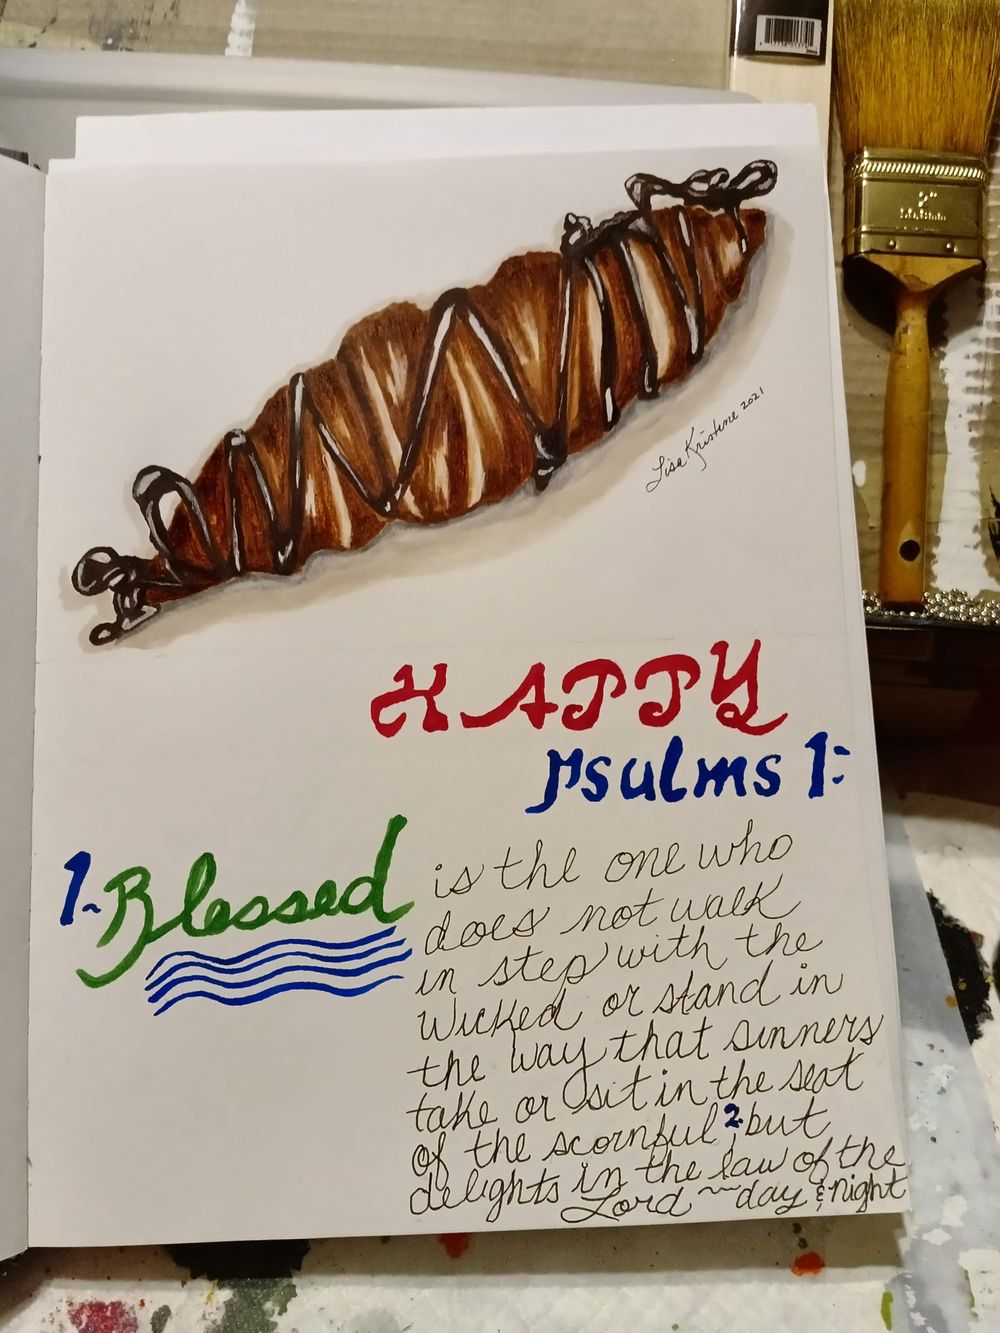 2"
50.8mm
Lisa Kristine 2021
HAPPY
Psulms 1:
1~ Blessed
is the one who
does not walk
in step with the
wicked or stand in
the way that sinners
take or sit in the seat
of the scornful 2 but
delights in the law of the
Lord ~~ day & night